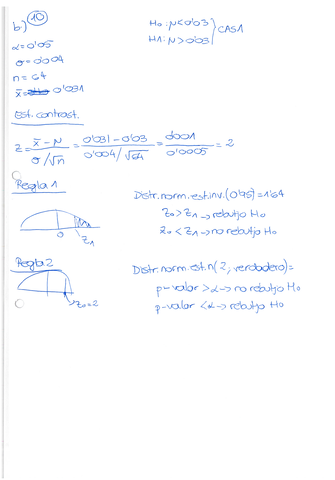 10
b.)
H0: μ<0'03
CASA
H1: μ>0'03
α=0'05
σ=0'004
n=64
x̄= 0'031
Est. contrast.
z = x̄ - μ / σ/√n = 0'031-0'03 / 0'004/√64 = 0'001 / 0'0005 = 2
Regla 1
0 Z1
Distr.norm.est.inv.(0'95)=1'64
Z0>Z1 → rebutjo H0
Z0<Z1 → no rebutjo H0
Regla 2
Z0=2
Distr.norm.est.n(2, verdadero)=
p-valor >α → no rebutjo H0
p-valor <α → rebutjo H0